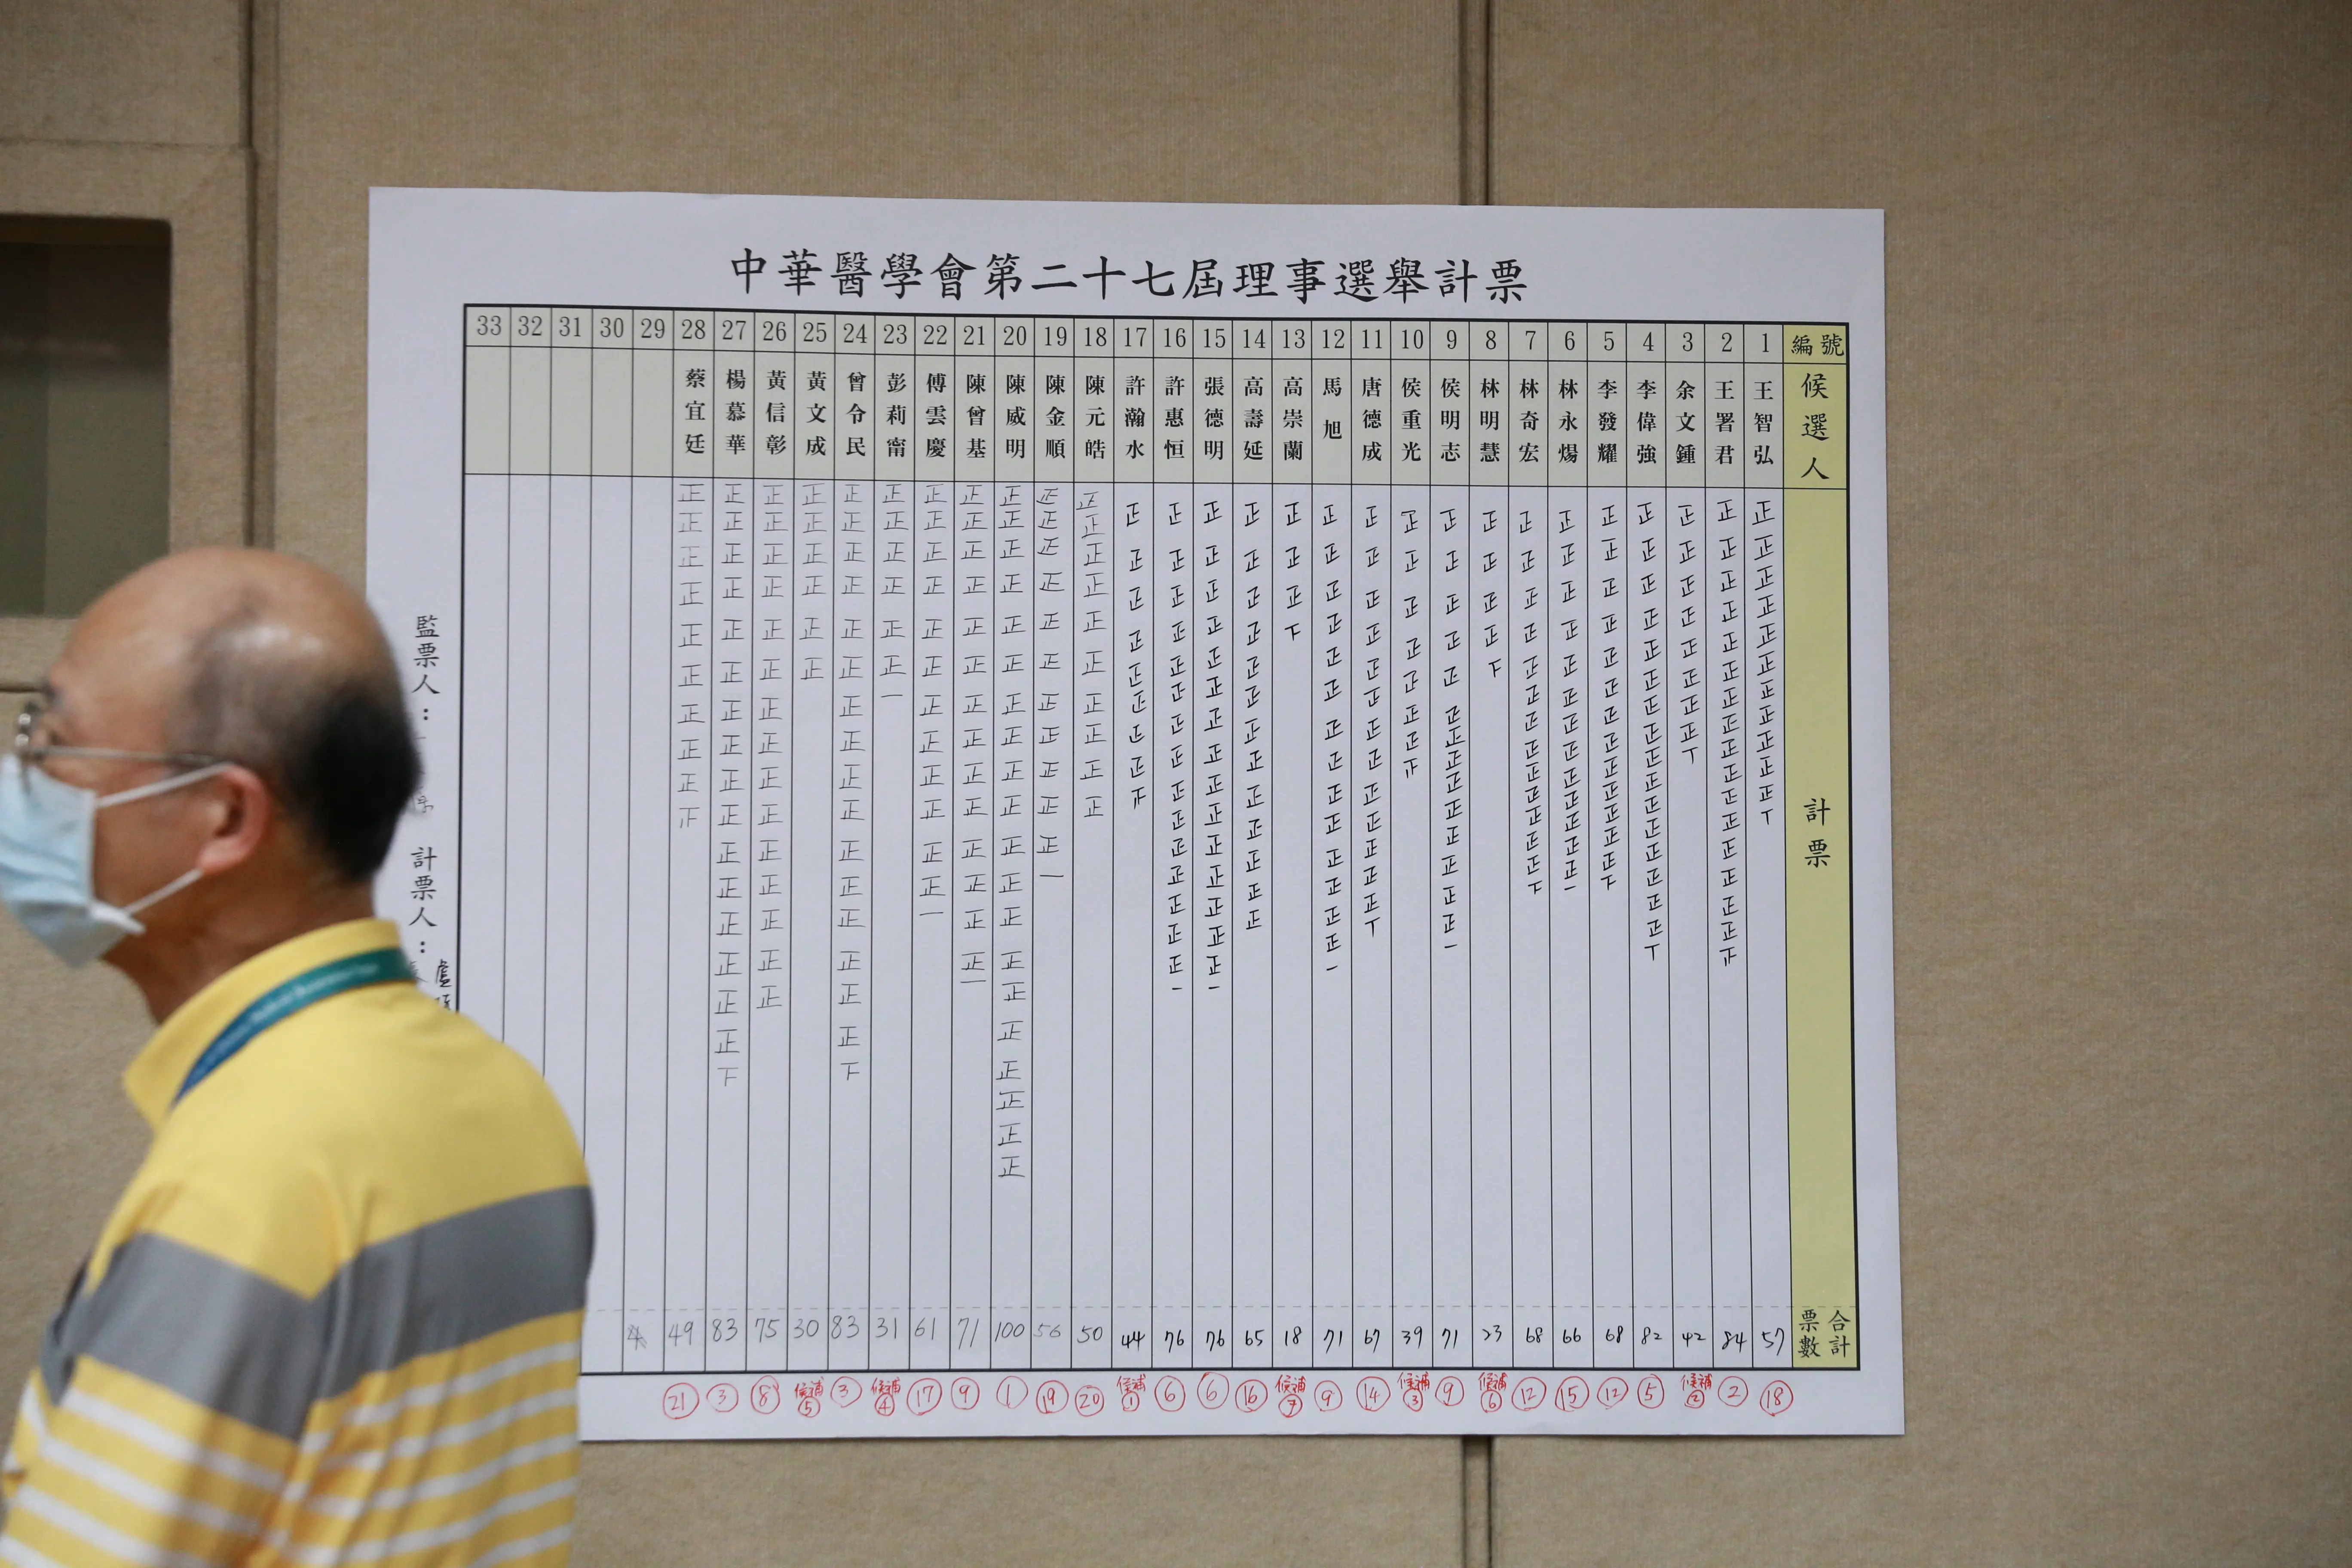 中華醫學會第二十七屆理事選舉計票
33 32 31 30 29 28 27 26 25 24 23 22 21 20 19 18 17 16 15 14 13 12 11 10 9 8 7 6 5 4 3 2 1 編號
候選人
王智弘
王署君
余文鍾
李偉強
李發耀
林永煬
林奇宏
林明慧
侯明志
侯重光
唐德成
馬旭
高崇蘭
高壽延
張德明
許惠恒
許瀚水
陳元皓
陳金順
陳威明
陳曾基
傅雲慶
彭莉甯
曾令民
黃文成
黃信彰
楊慕華
蔡宜廷
計票
合計票數
49 83 75 30 83 31 61 71 100 56 50 44 76 76 65 18 71 67 39 71 23 68 66 68 82 42 84 57
21 3 8 候補5 3 候補4 17 9 1 19 20 候補1 6 6 16 候補7 9 14 候補3 9 候補6 12 15 12 5 候補2 2 18
監票人：
計票人：